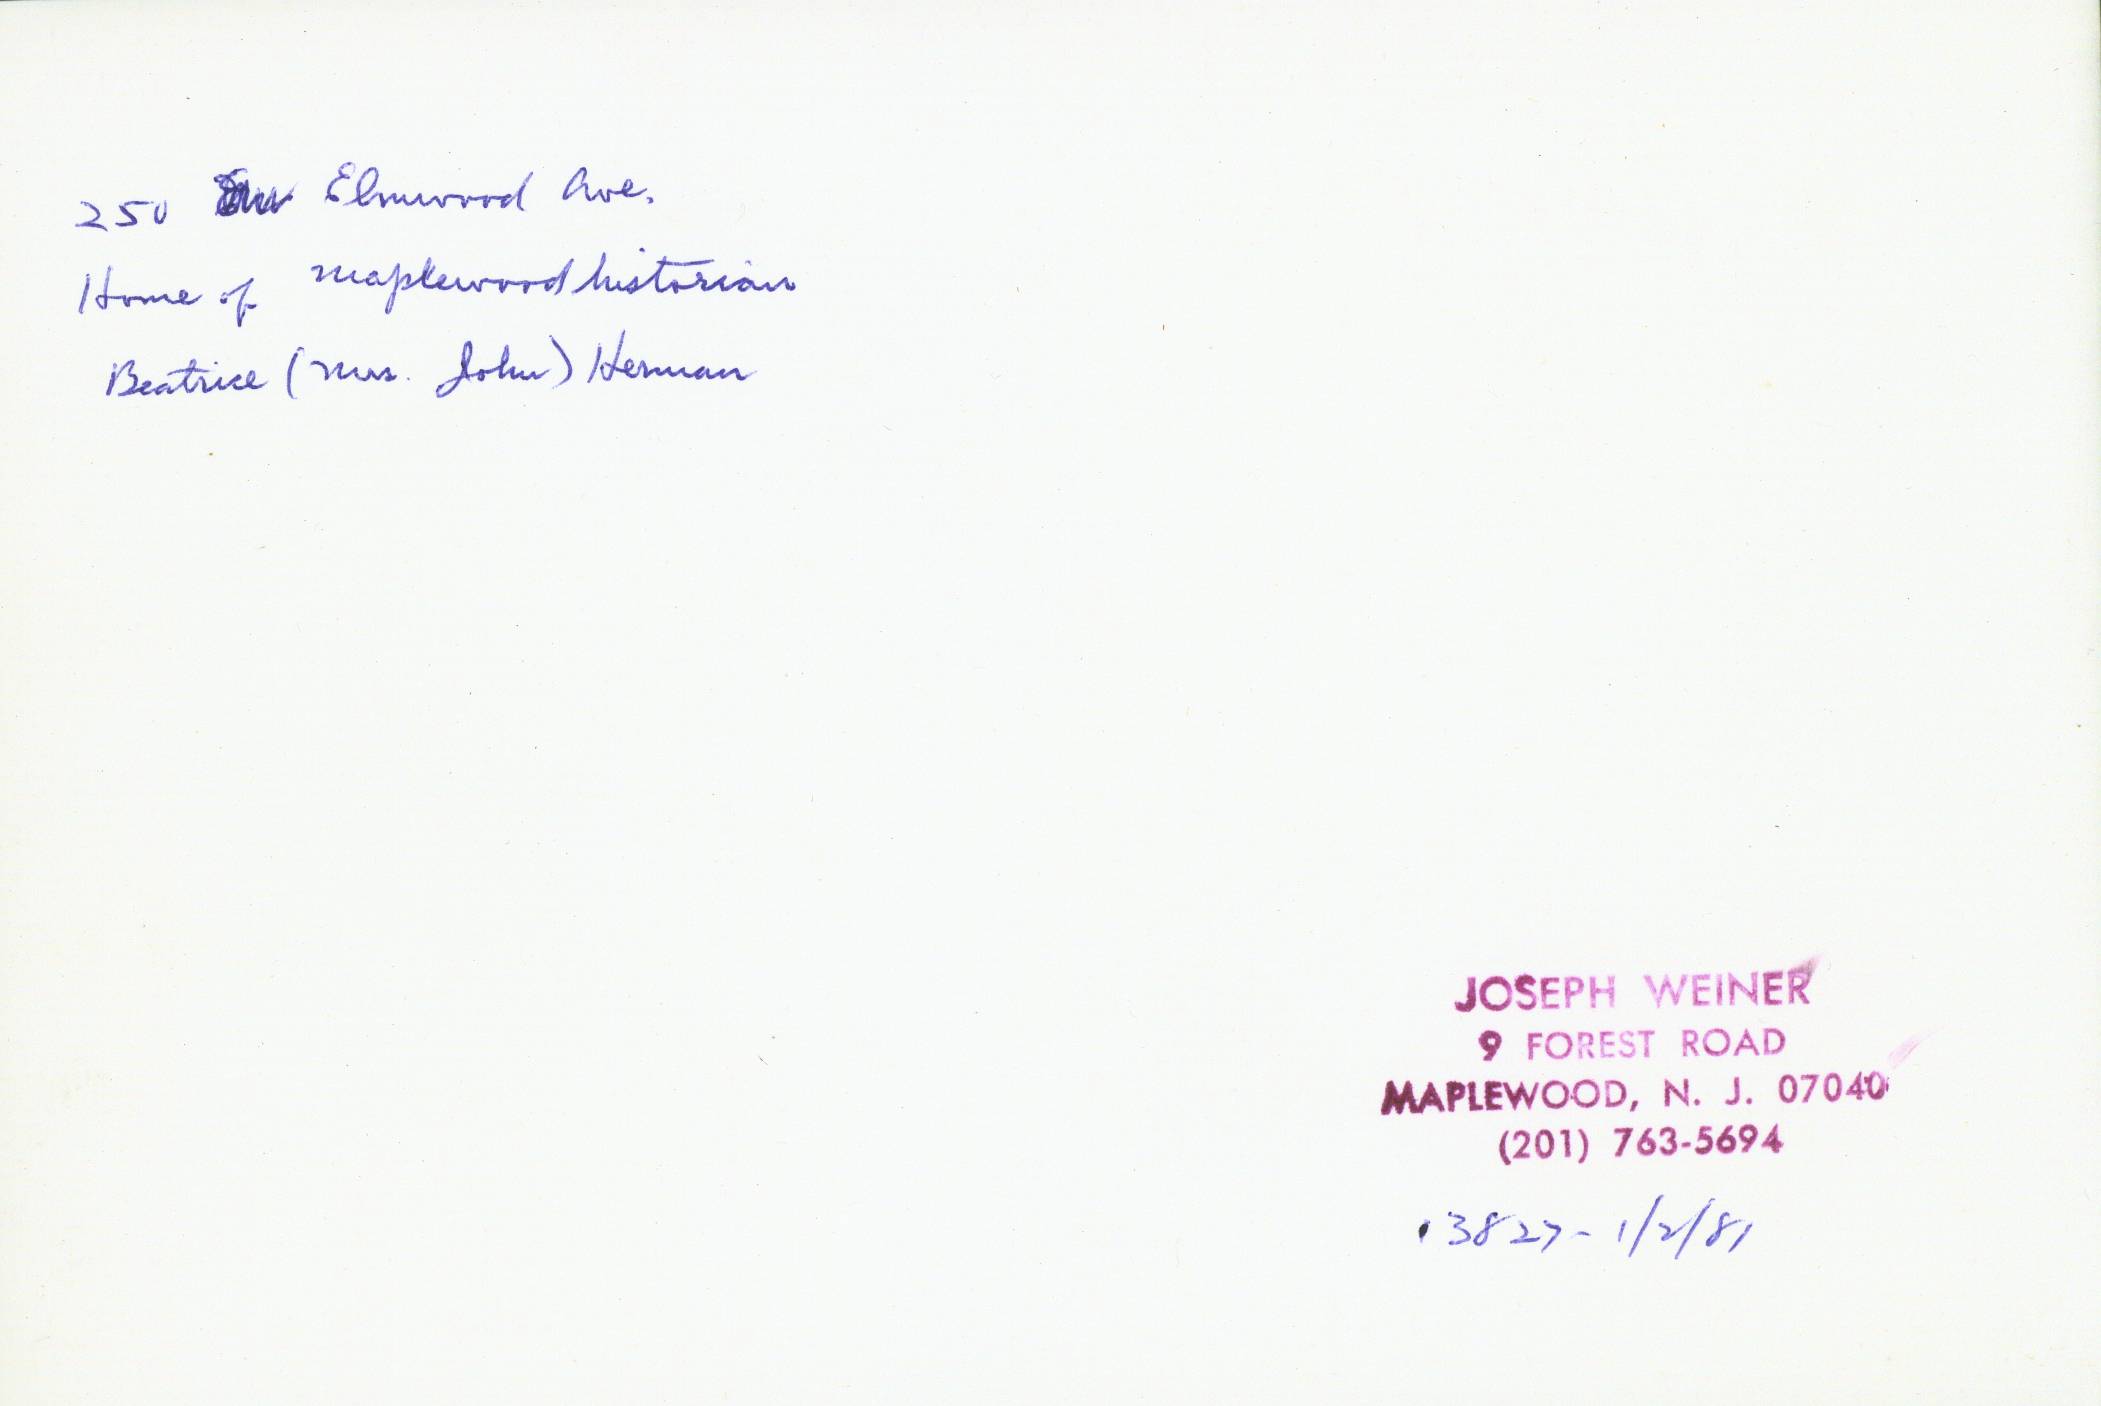 250 Elmwood Ave.
Home of Maplewood historian
Beatrice (Mrs. John) Herman
JOSEPH WEINER
9 FOREST ROAD
MAPLEWOOD, N. J. 07040
(201) 763-5694
3827 - 1/2/81